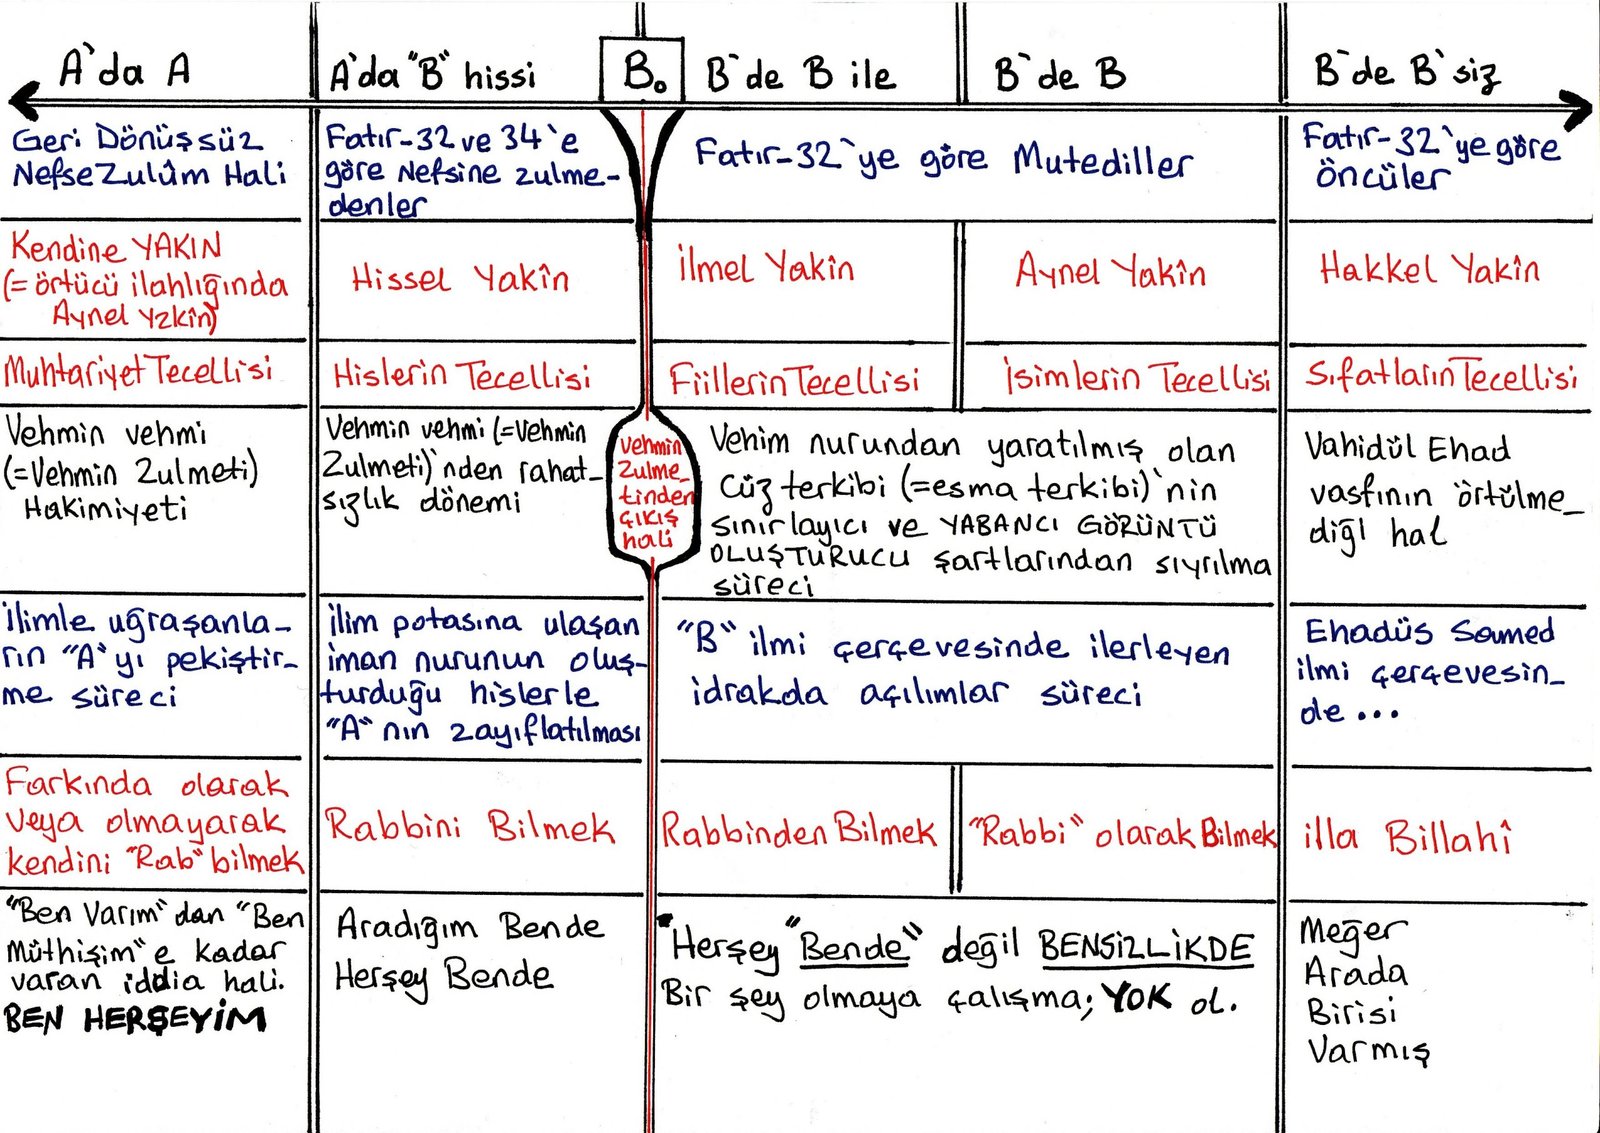 A`da A
A`da "B" hissi
B₀
B`de B ile
B`de B
B`de B`siz
Geri Dönüşsüz
Nefse Zulûm Hali
Fatır-32 ve 34`e
göre Nefsine zulme-
denler
Fatır-32`ye göre Mutediller
Fatır-32`ye göre
öncüler
Kendine YAKIN
(=örtücü ilahlığında
Aynel Yzkîn)
Hissel Yakîn
İlmel Yakîn
Aynel Yakîn
Hakkel Yakîn
Muhtariyet Tecellisi
Hislerin Tecellisi
Fiillerin Tecellisi
İsimlerin Tecellisi
Sıfatların Tecellisi
Vehmin vehmi
(=Vehmin Zulmeti)
Hakimiyeti
Vehmin vehmi (=Vehmin
Zulmeti)`nden rahat-
sızlık dönemi
Vehmin
Zulme-
tinden
çıkış
hali
Vehim nurundan yaratılmış olan
Cüz terkibi (=esma terkibi)`nin
sınırlayıcı ve YABANCI GÖRÜNTÜ
OLUŞTURUCU şartlarından sıyrılma
süreci
Vahidül Ehad
vasfının örtülme-
diğI hal
İlimle uğraşanla-
rın "A"yı pekiştir-
me süreci
İlim potasına ulaşan
iman nurunun oluş-
turduğu hislerle
"A"nın zayıflatılması
"B" ilmi çerçevesinde ilerleyen
idrakda açılımlar süreci
Ehadüs Samed
ilmi çerçevesin-
de ...
Farkında olarak
veya olmayarak
kendini "Rab" bilmek
Rabbini Bilmek
Rabbinden Bilmek
"Rabbi" olarak Bilmek
illa Billahî
"Ben Varım" dan "Ben
Müthişim"e kadar
varan iddia hali.
BEN HERŞEYİM
Aradığım Bende
Herşey Bende
"Herşey "Bende" değil BENSİZLİKDE
Bir şey olmaya çalışma; YOK ol.
Meğer
Arada
Birisi
Varmış